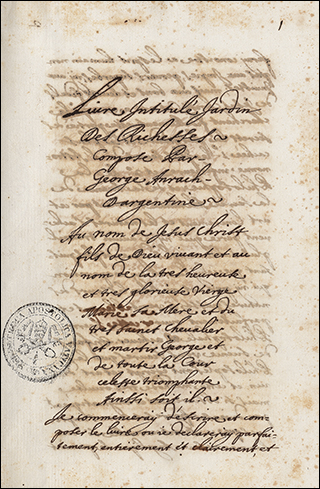 1
Livre Intitulé Jardin
Des Richesses
Compose Par
George Aurach
Dargentine
Au nom de Jesus Christ
fils de Dieu vivant et au
nom de la tres heureuse
et tres glorieuse Vierge
Marie sa Mere et du
tres sainct Chevalier
et martir George et
de toute la Cour
celeste triomphante
Ainsi soit il.
Je commenceray d'escrire et com-
poser le livre, ou ie declareray parfai-
tement, entierement et clairement, et